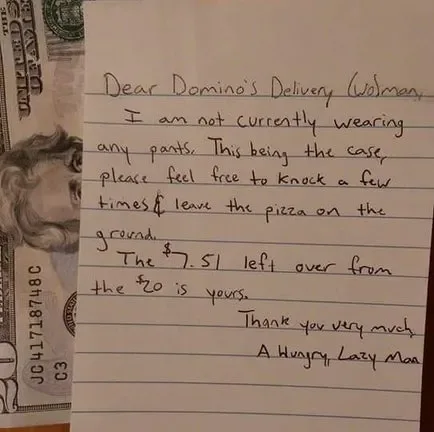 Dear Domino's Delivery (Wo)man,
I am not currently wearing
any pants. This being the case,
please feel free to knock a few
times & leave the pizza on the
ground.
The $7.51 left over from
the $20 is yours.
Thank you very much,
A Hungry, Lazy Man
JC41718748C
C3
20